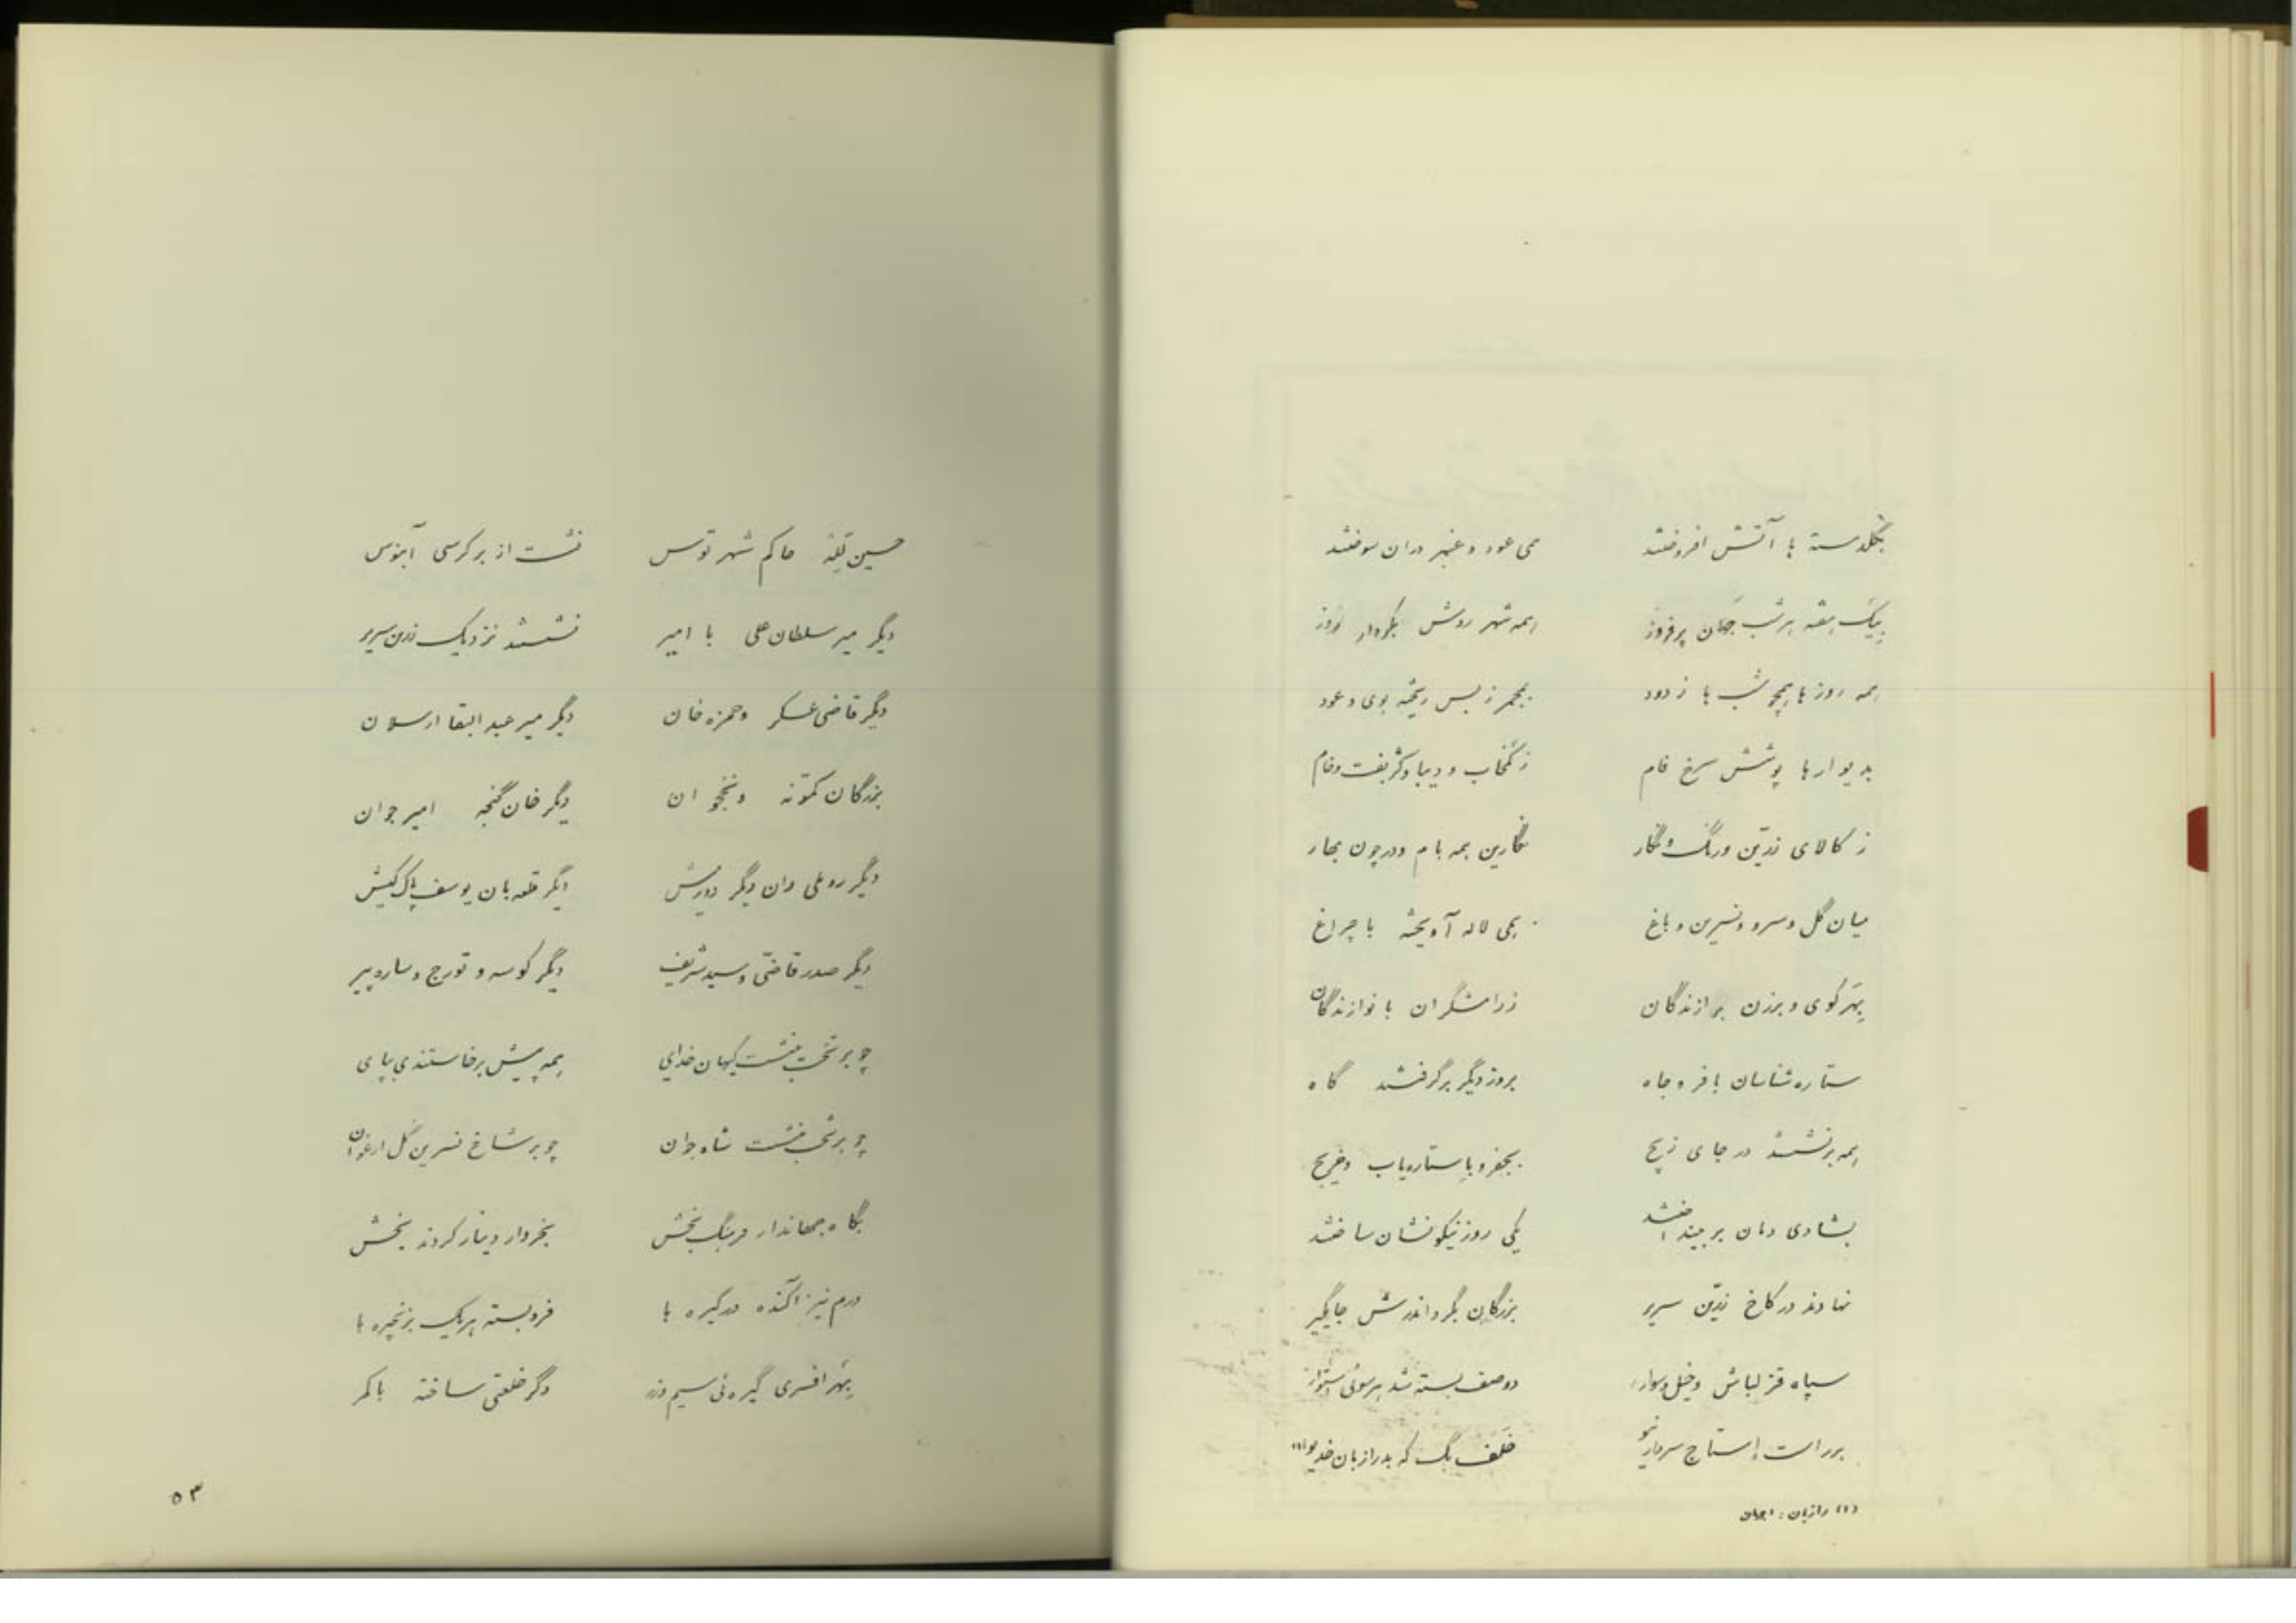 بگلدسته ها آتش افروختند می عود و عنبر دران سوختند
بیک هفته هر شب جهان پرفروز همه شهر روشن بکردار روز
همه روزها همچو شب ها ز دود بمجمر ز بس ریخته بوی و عود
بدیوارها پوشش سرخ فام ز کمخاب و دیبا و زربفت و خام
ز کالای زرین و رنگ و نگار نگارین همه بام و در چون بهار
میان گل و سرو و نسرین و باغ همی لاله آویخته با چراغ
بهر کوی و برزن برازندگان ز رامشگران با نوازندگان
ستاره شناسان با فر و جاه بروز دیگر برگرفتند گاه
همه برنشستند در جای زیج بجفر و با ستاره یاب و
بشادی دمان یکی روز نیکو نشان ساختند
نهادند در کاخ زرین سریر بزرگان بگرد اندرش جایگیر
سپاه قزلباش و خیل و سوار دو صف بسته شد هر سوئی استوار
بر راست استاج خلف بگ که بد رازبان خدیو (۱)
(۱) رازبان :
حسین حاکم شهر توس نشست از بر کرسی آبنوس
دیگر میر سلطان علی با امیر نشستند نزدیک زرین سریر
دیگر قاضی عسکر و حمزه خان دیگر میر عبدالبقا ارسلان
بزرگان و نخجوان دیگر خان گنجه امیر جوان
دیگر وان دیگر دیگر قلعه بان یوسف پاک کیش
دیگر صدر قاضی و سید شریف دیگر کوسه و تورج و
چو بر تخت بنشست کیهان خدای همه پیش برخاستندی بپای
چو بر تخت بنشست شاه جوان چو بر شاخ نسرین گل ارغوان
بگاه جهاندار فرهنگ بخش بخروار دینار کردند بخش
درم نیز آکنده در گیره ها فروبسته هر یک بزنجیره ها
بهر افسری گیره ئی سیم و زر دگر خلعتی ساخته با کمر
۵۳